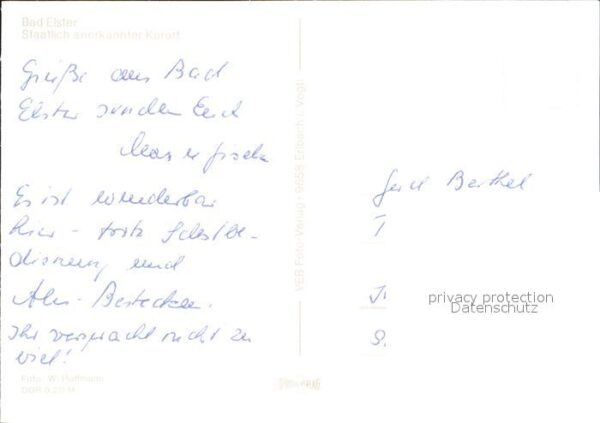 Bad Elster
Staatlich anerkannter Kurort
Grüße aus Bad
Elster senden Euch
Max u.
Es ist wunderbar
hier - trotz Selbstbe-
dienung und
Alu-Bestecken.
Ihr verspracht nicht zu
viel!
Foto: W. Hoffmann
DDR 0,20 M
VEB Foto-Verlag · 9658 Erlbach i. Vogtl.
Gerd Barthel
privacy protection
Datenschutz